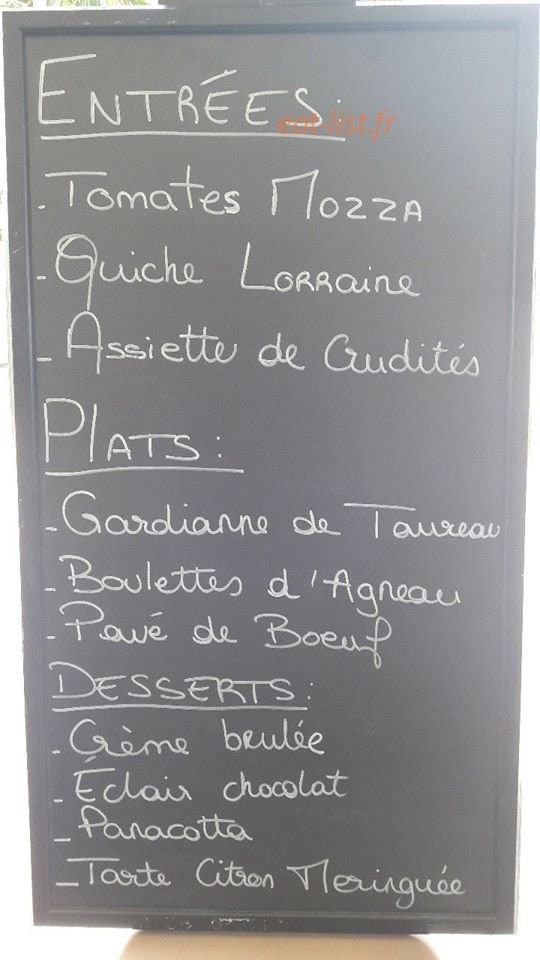 ENTRÉES:
eat-list.fr
- Tomates MOZZA
- Quiche LORRaine
- Assiette de Crudités
PLATS:
- Gardianne de Taureau
- Boulettes d'Agneau
- Pavé de Boeuf
DESSERTS:
- Crème brulée
- Éclair chocolat
- Panacotta
- Tarte Citron Meringuée